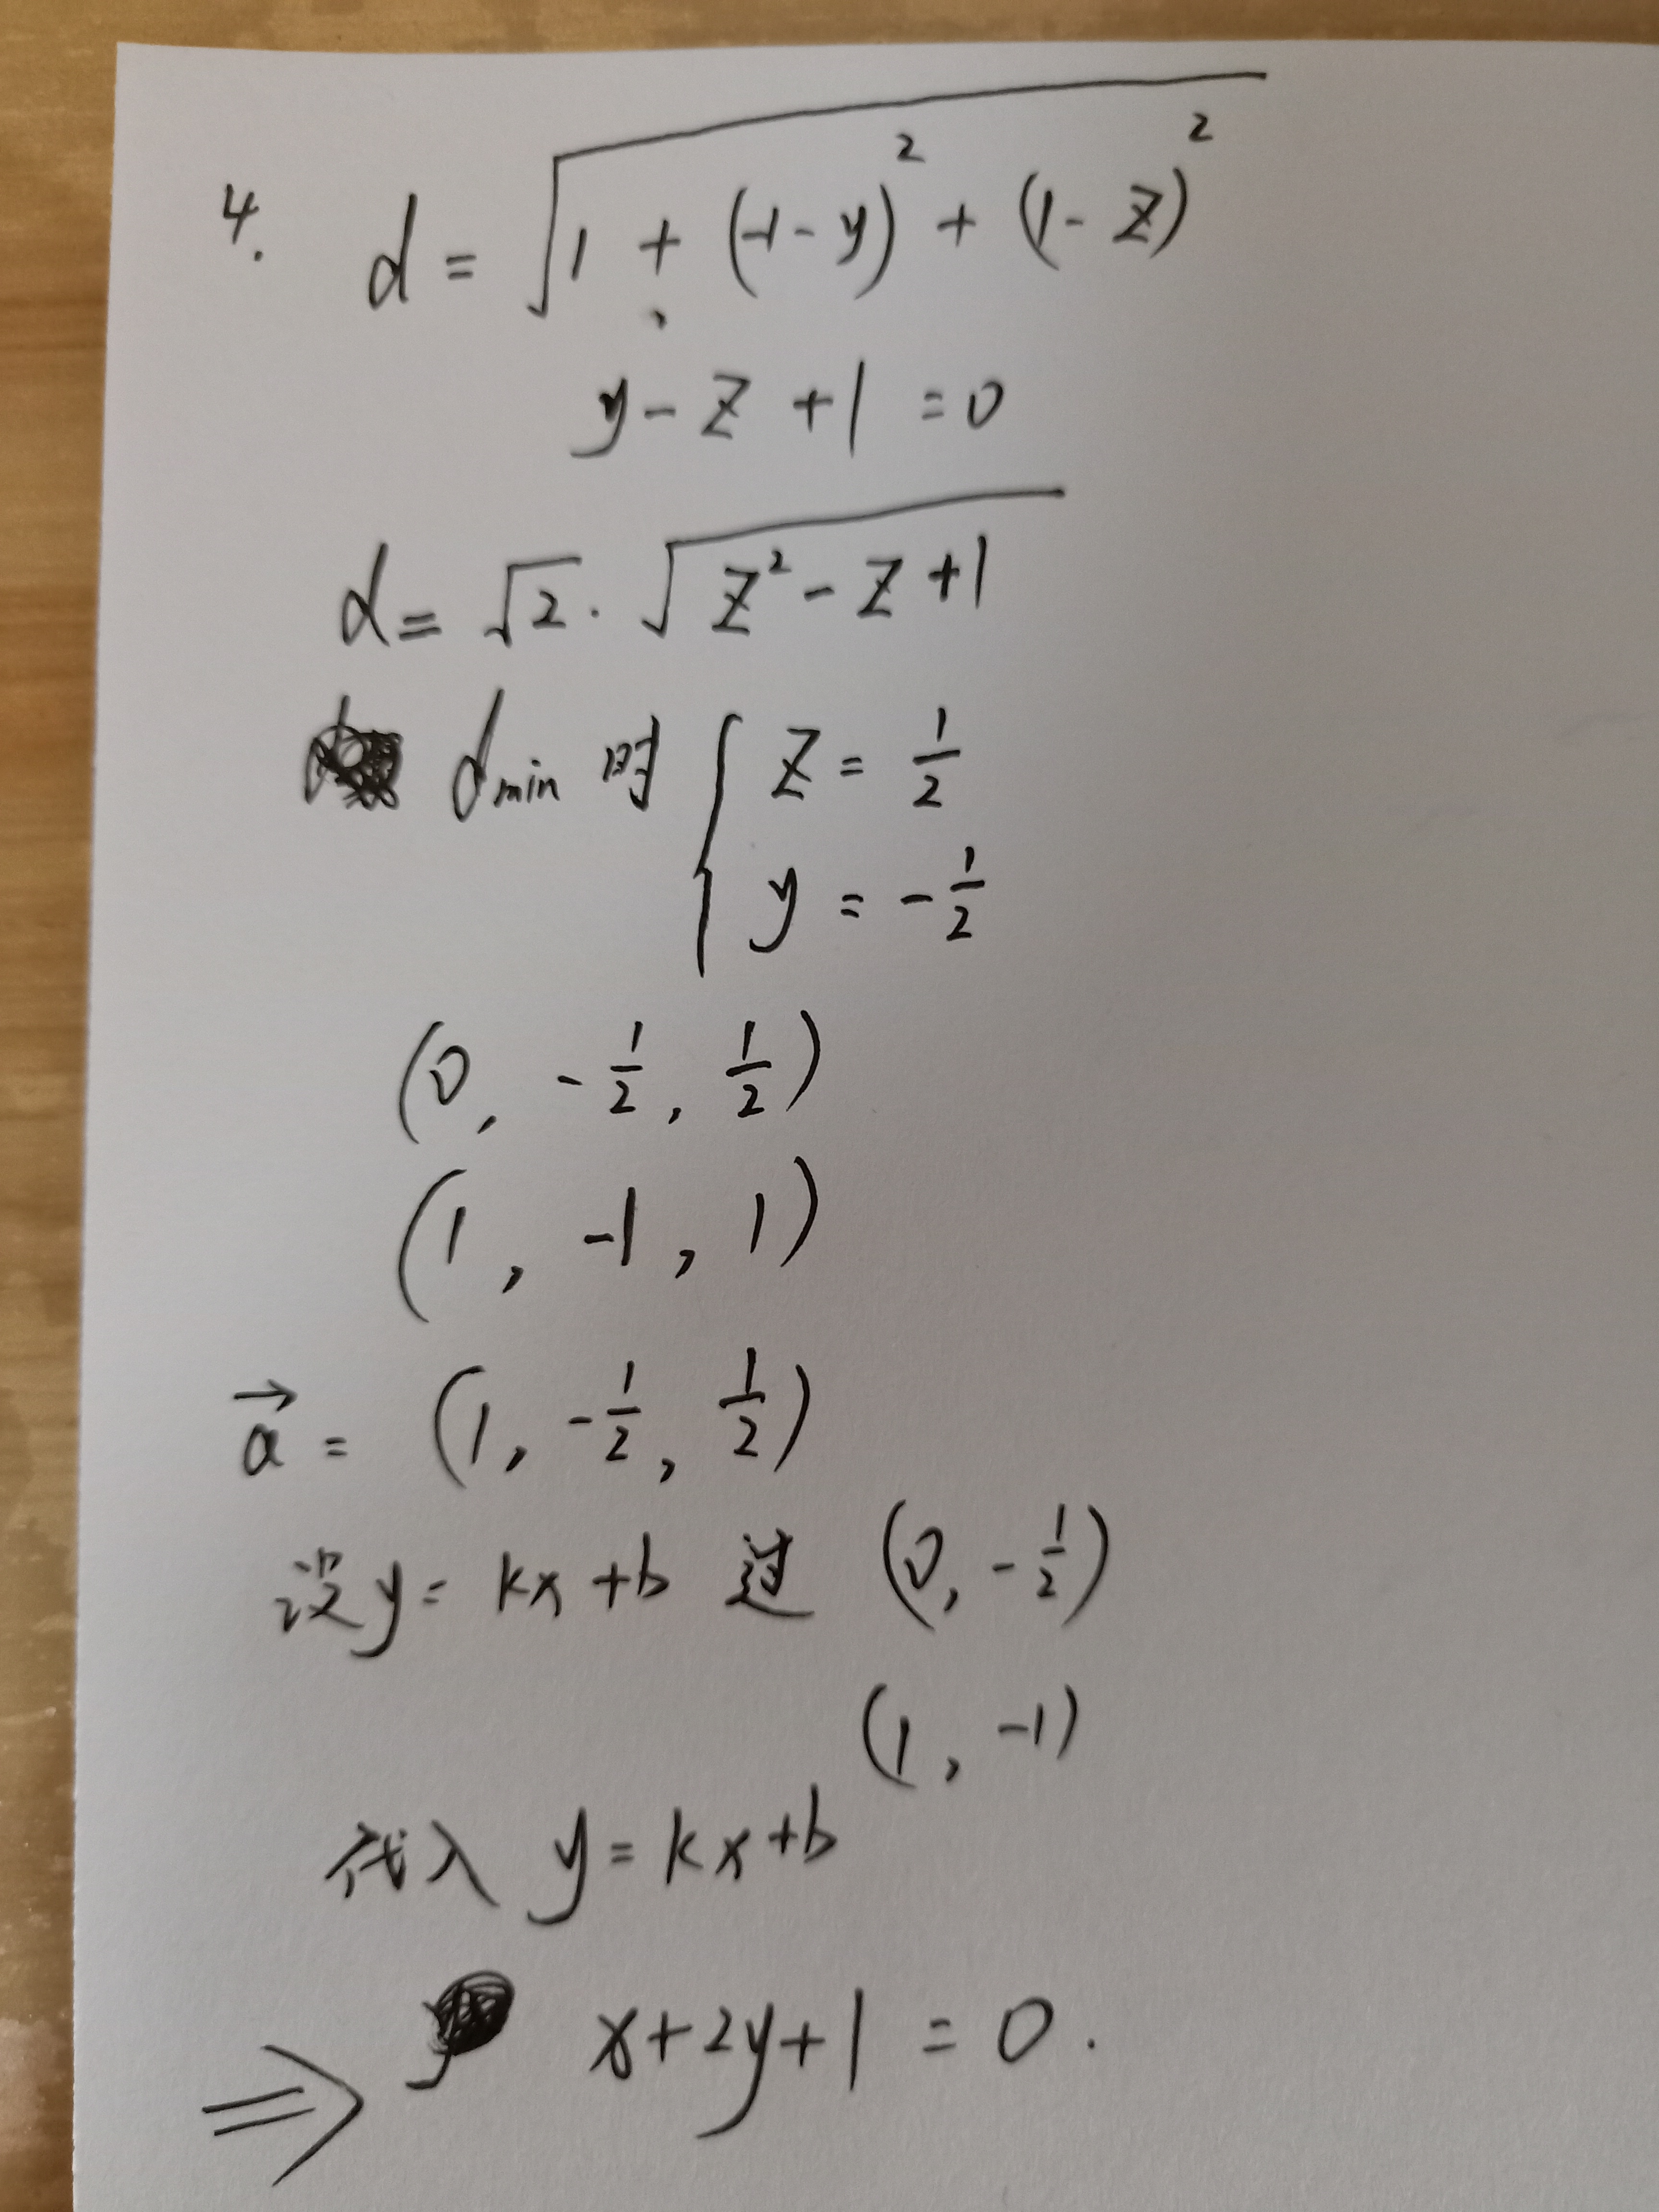 4. d = √(1 + (-1-y)² + (1-z)²)
y - z + 1 = 0
d = √2 · √(z² - z + 1)
dmin 时 { z = 1/2
y = -1/2
(0, -1/2, 1/2)
(1, -1, 1)
a⃗ = (1, -1/2, 1/2)
设 y = kx + b 过 (0, -1/2)
(1, -1)
代入 y = kx + b
⇒ x + 2y + 1 = 0.